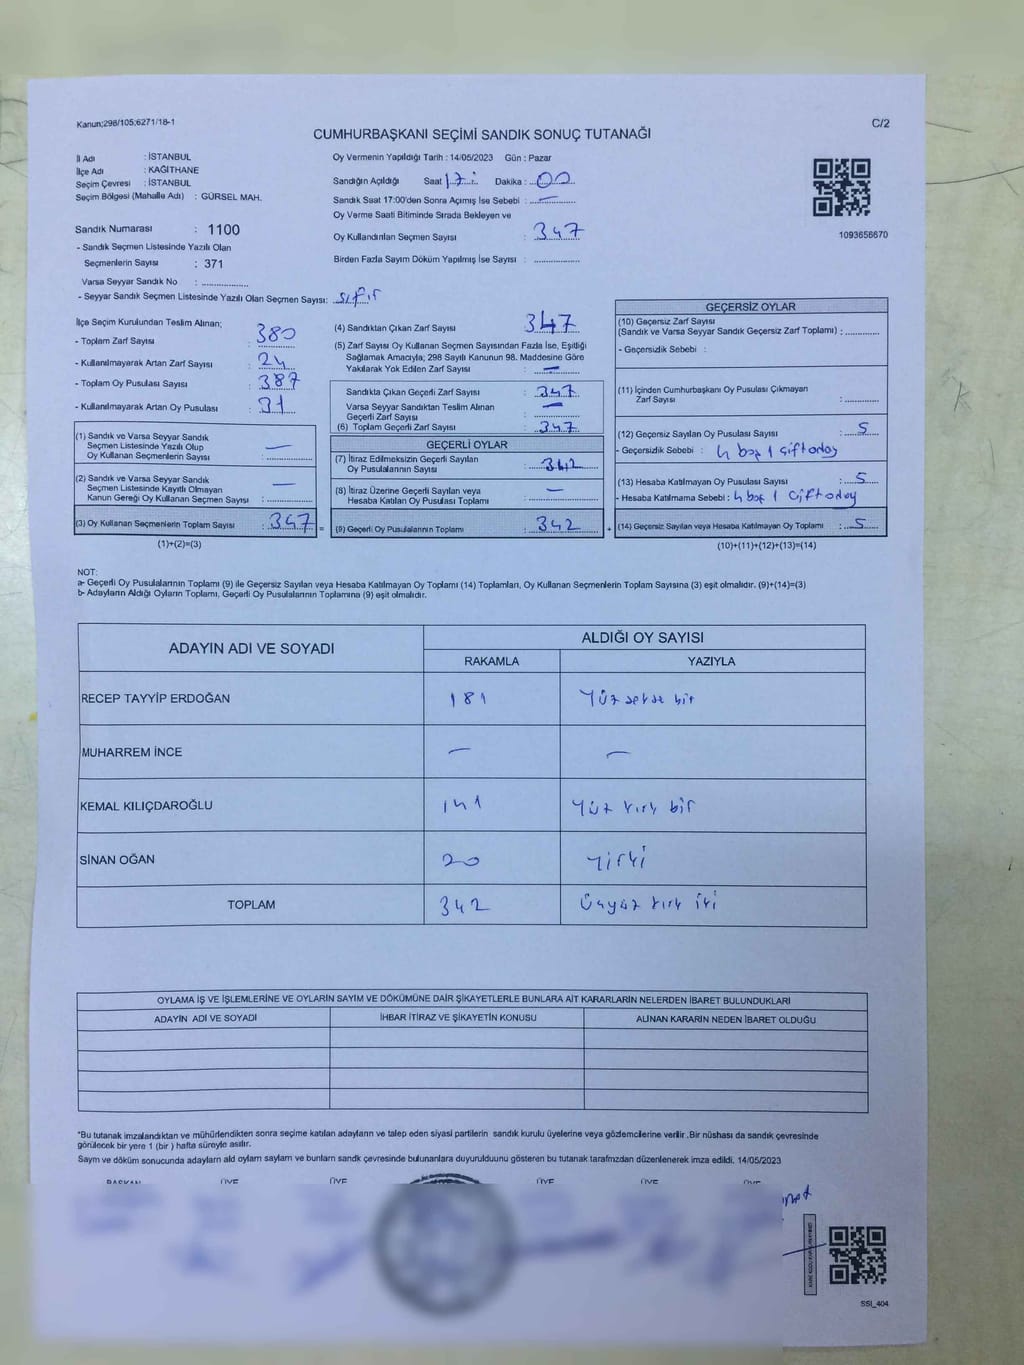 Kanun;298/105;6271/18-1
C/2
CUMHURBAŞKANI SEÇİMİ SANDIK SONUÇ TUTANAĞI
İl Adı : İSTANBUL
İlçe Adı : KAĞITHANE
Seçim Çevresi : İSTANBUL
Seçim Bölgesi (Mahalle Adı) : GÜRSEL MAH.
Sandık Numarası : 1100
- Sandık Seçmen Listesinde Yazılı Olan
Seçmenlerin Sayısı : 371
Varsa Seyyar Sandık No :
- Seyyar Sandık Seçmen Listesinde Yazılı Olan Seçmen Sayısı: sıfır
Oy Vermenin Yapıldığı Tarih : 14/05/2023 Gün : Pazar
Sandığın Açıldığı Saat 17 : Dakika : 00
Sandık Saat 17:00'den Sonra Açımış İse Sebebi : —
Oy Verme Saati Bitiminde Sırada Bekleyen ve
Oy Kullandırılan Seçmen Sayısı : 347
Birden Fazla Sayım Döküm Yapılmış İse Sayısı :
1093656670
İlçe Seçim Kurulundan Teslim Alınan;
- Toplam Zarf Sayısı : 380
- Kullanılmayarak Artan Zarf Sayısı : 24
- Toplam Oy Pusulası Sayısı : 387
- Kullanılmayarak Artan Oy Pusulası : 31
(1) Sandık ve Varsa Seyyar Sandık
Seçmen Listesinde Yazılı Olup
Oy Kullanan Seçmenlerin Sayısı : —
(2) Sandık ve Varsa Seyyar Sandık
Seçmen Listesinde Kayıtlı Olmayan
Kanun Gereği Oy Kullanan Seçmen Sayısı : —
(3) Oy Kullanan Seçmenlerin Toplam Sayısı : 347 =
(1)+(2)=(3)
(4) Sandıktan Çıkan Zarf Sayısı : 347
(5) Zarf Sayısı Oy Kullanan Seçmen Sayısından Fazla İse, Eşitliği
Sağlamak Amacıyla; 298 Sayılı Kanunun 98. Maddesine Göre
Yakılarak Yok Edilen Zarf Sayısı : —
Sandıkta Çıkan Geçerli Zarf Sayısı : 347
Varsa Seyyar Sandıktan Teslim Alınan
Geçerli Zarf Sayısı : —
(6) Toplam Geçerli Zarf Sayısı : 347
GEÇERLİ OYLAR
(7) İtiraz Edilmeksizin Geçerli Sayılan
Oy Pusulalarının Sayısı : 342
(8) İtiraz Üzerine Geçerli Sayılan veya
Hesaba Katılan Oy Pusulası Toplamı : —
(9) Geçerli Oy Pusulalarının Toplamı : 342 +
GEÇERSİZ OYLAR
(10) Geçersiz Zarf Sayısı
(Sandık ve Varsa Seyyar Sandık Geçersiz Zarf Toplamı) :
- Geçersizlik Sebebi :
(11) İçinden Cumhurbaşkanı Oy Pusulası Çıkmayan
Zarf Sayısı :
(12) Geçersiz Sayılan Oy Pusulası Sayısı : 5
- Geçersizlik Sebebi : 4 boş 1 çift oday
(13) Hesaba Katılmayan Oy Pusulası Sayısı : 5
- Hesaba Katılmama Sebebi : 4 boş 1 çift oday
(14) Geçersiz Sayılan veya Hesaba Katılmayan Oy Toplamı : 5
(10)+(11)+(12)+(13)=(14)
NOT:
a- Geçerli Oy Pusulalarının Toplamı (9) ile Geçersiz Sayılan veya Hesaba Katılmayan Oy Toplamı (14) Toplamları, Oy Kullanan Seçmenlerin Toplam Sayısına (3) eşit olmalıdır. (9)+(14)=(3)
b- Adayların Aldığı Oyların Toplamı, Geçerli Oy Pusulalarının Toplamına (9) eşit olmalıdır.
ADAYIN ADI VE SOYADI
ALDIĞI OY SAYISI
RAKAMLA
YAZIYLA
RECEP TAYYİP ERDOĞAN 181 Yüz seksen bir
MUHARREM İNCE — —
KEMAL KILIÇDAROĞLU 141 Yüz kırk bir
SİNAN OĞAN 20 Yirmi
TOPLAM 342 Üçyüz kırk iki
OYLAMA İŞ VE İŞLEMLERİNE VE OYLARIN SAYIM VE DÖKÜMÜNE DAİR ŞİKAYETLERLE BUNLARA AİT KARARLARIN NELERDEN İBARET BULUNDUKLARI
ADAYIN ADI VE SOYADI
İHBAR İTİRAZ VE ŞİKAYETİN KONUSU
ALINAN KARARIN NEDEN İBARET OLDUĞU
*Bu tutanak imzalandıktan ve mühürlendikten sonra seçime katılan adayların ve talep eden siyasi partilerin sandık kurulu üyelerine veya gözlemcilerine verilir. Bir nüshası da sandık çevresinde
görülecek bir yere 1 (bir ) hafta süreyle asılır.
Sayım ve döküm sonucunda adayların ald oyların sayların ve bunların sandk çevresinde bulunanlara duyurulduunu gösteren bu tutanak tarafmzdan düzenlenerek imza edildi. 14/05/2023
BAŞKAN ÜYE ÜYE ÜYE ÜYE ÜYE
SSI_404